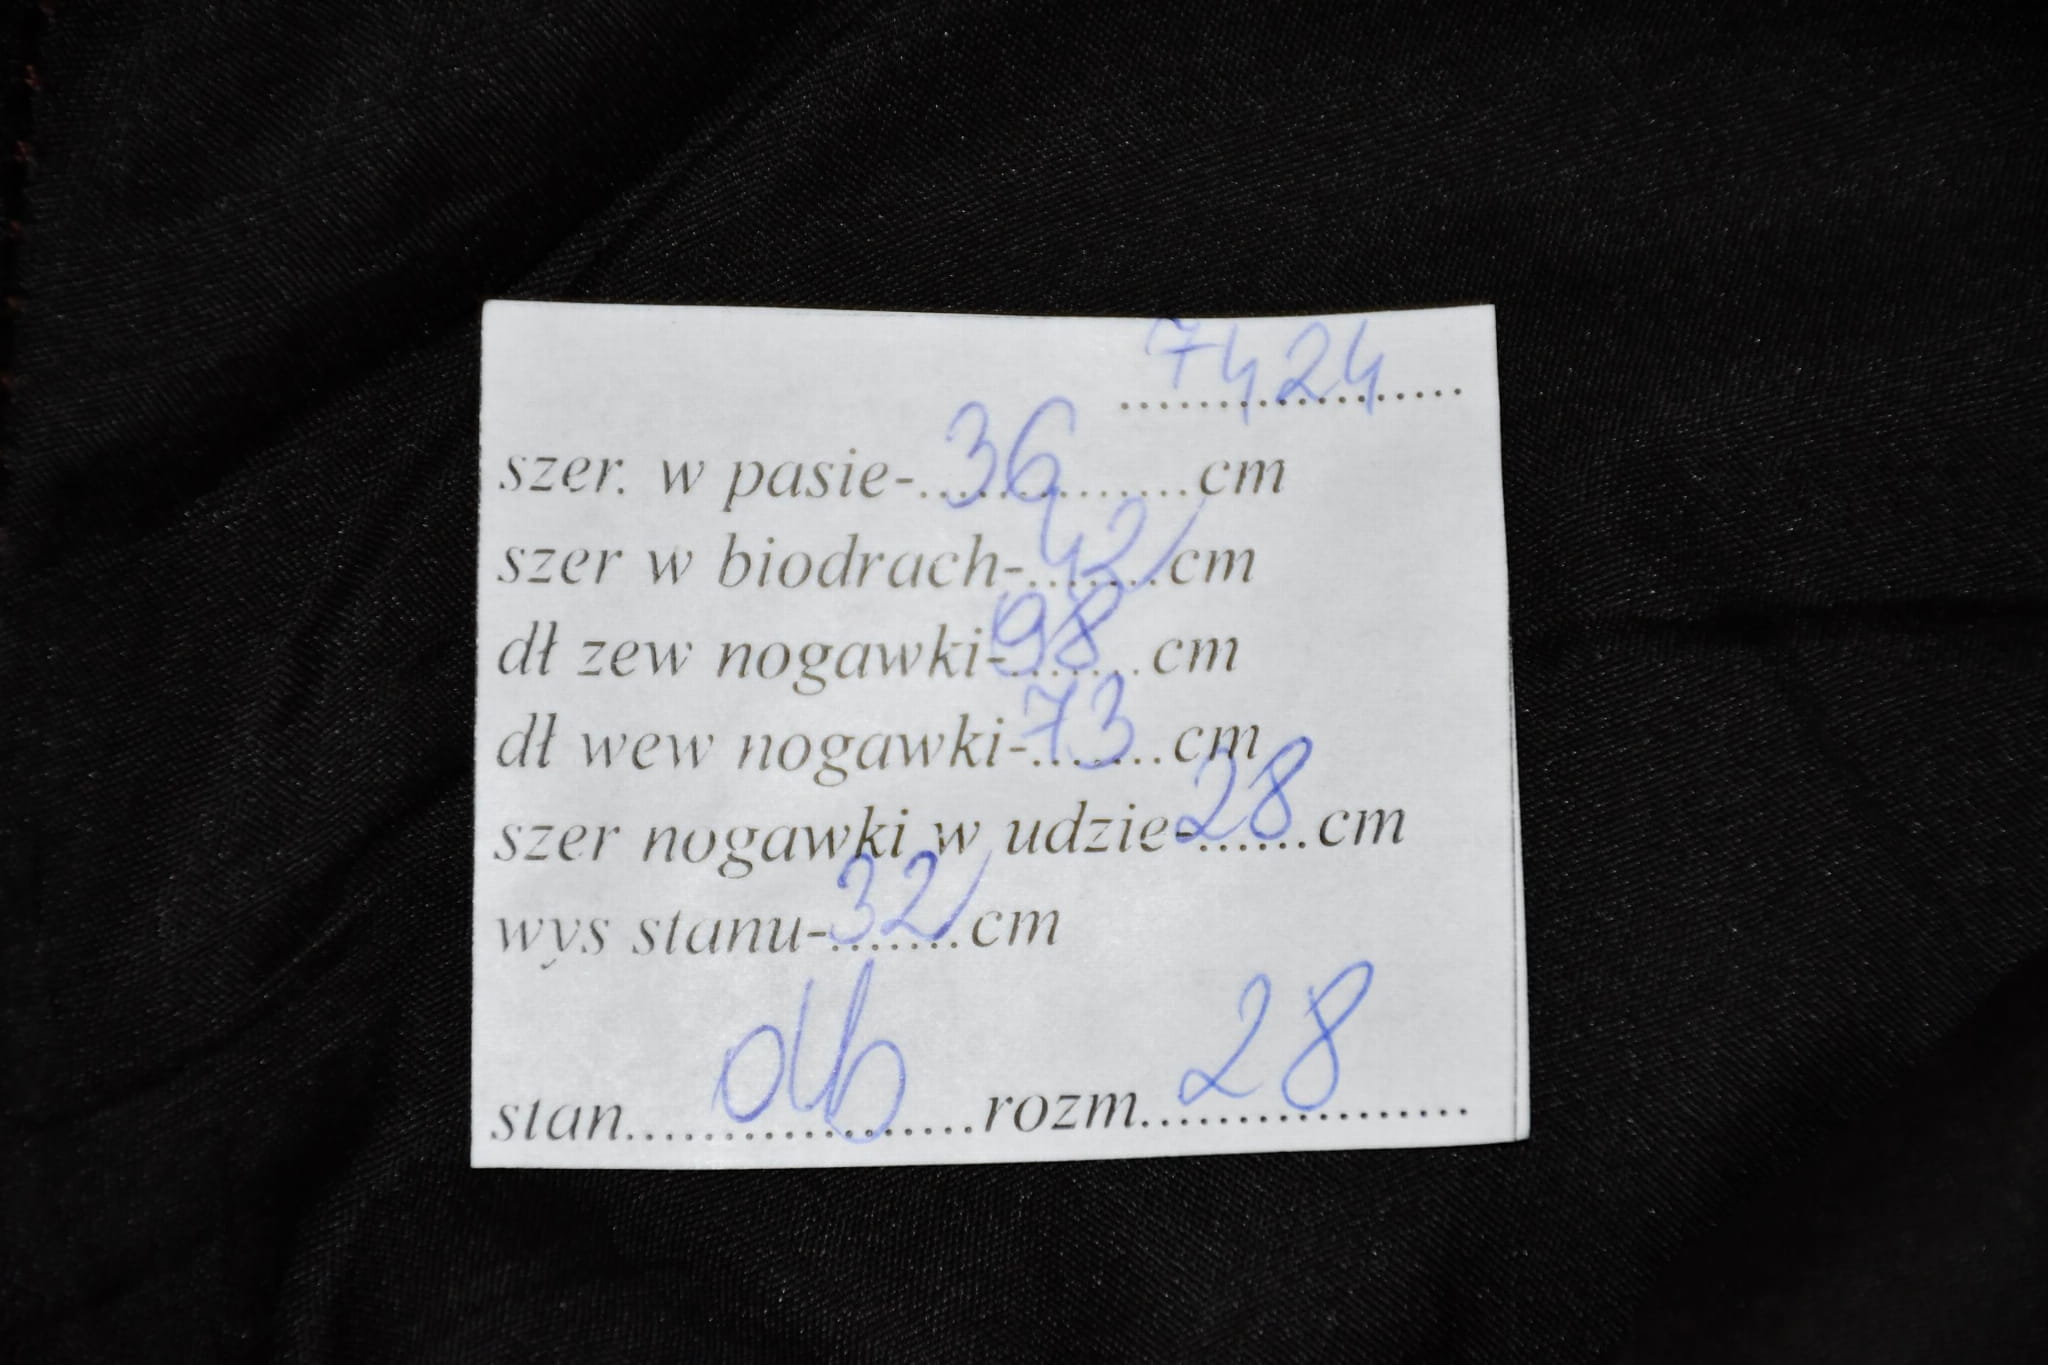 7424
szer. w pasie-..36..........cm
szer w biodrach-..42....cm
dł zew nogawki-98......cm
dł wew nogawki-.73.....cm
szer nogawki w udzie-28......cm
wys stanu-32.......cm
stan......db............rozm...28..............